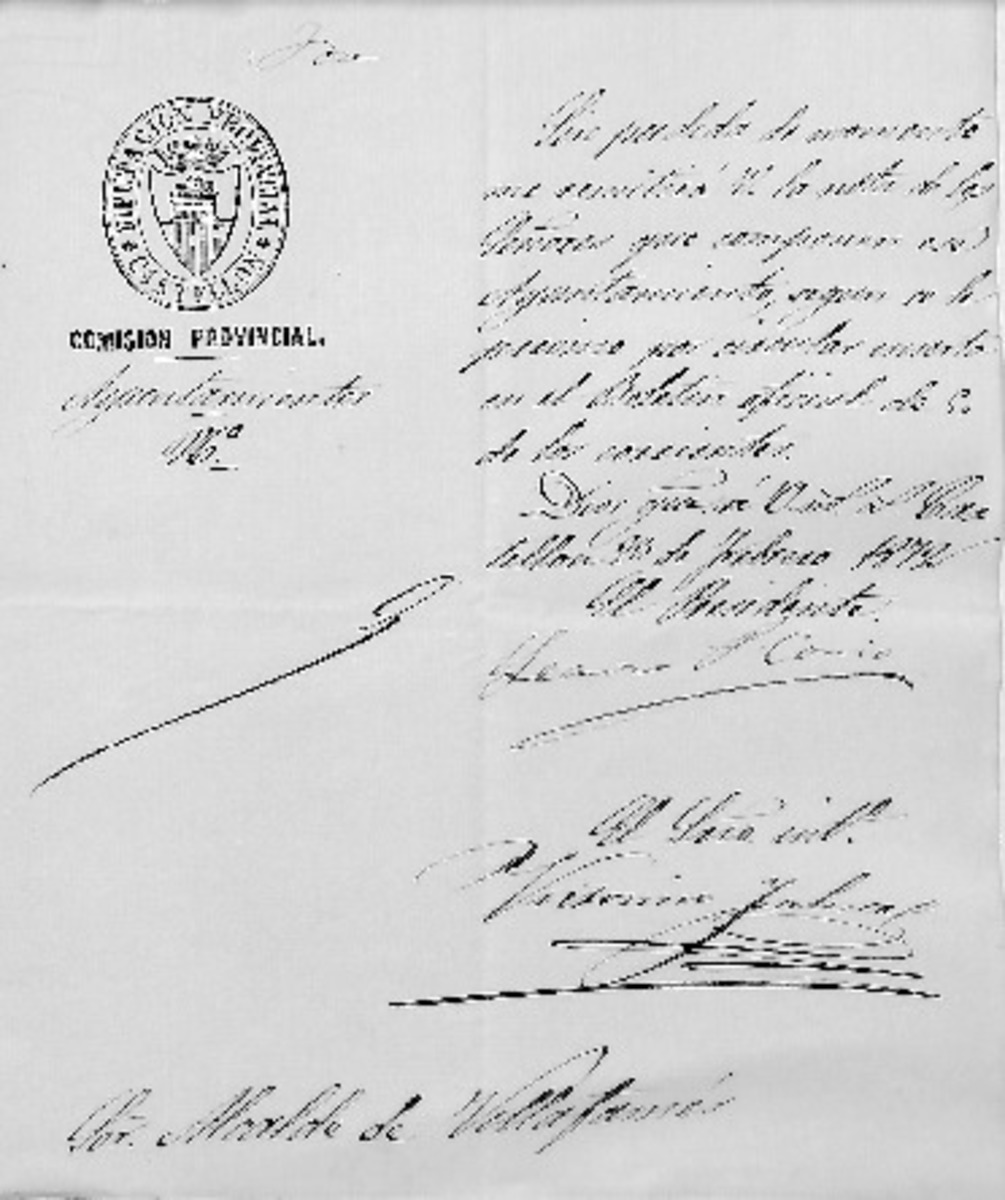 DIPUTACION PROVINCIAL
CASTELLON
COMISION PROVINCIAL.
Ayuntamientos
Nº.
Sin perdida de momento
me remitirá V. la nota de los
Señores que componen ese
Ayuntamiento, segun se le
previno por circular inserta
en el Boletin oficial de
de los corrientes.
Dios gue. á V. Cas
tellon de Febrero 1872
El Presidente.
El Srio. int.º
Sor. Alcalde de Villafamés